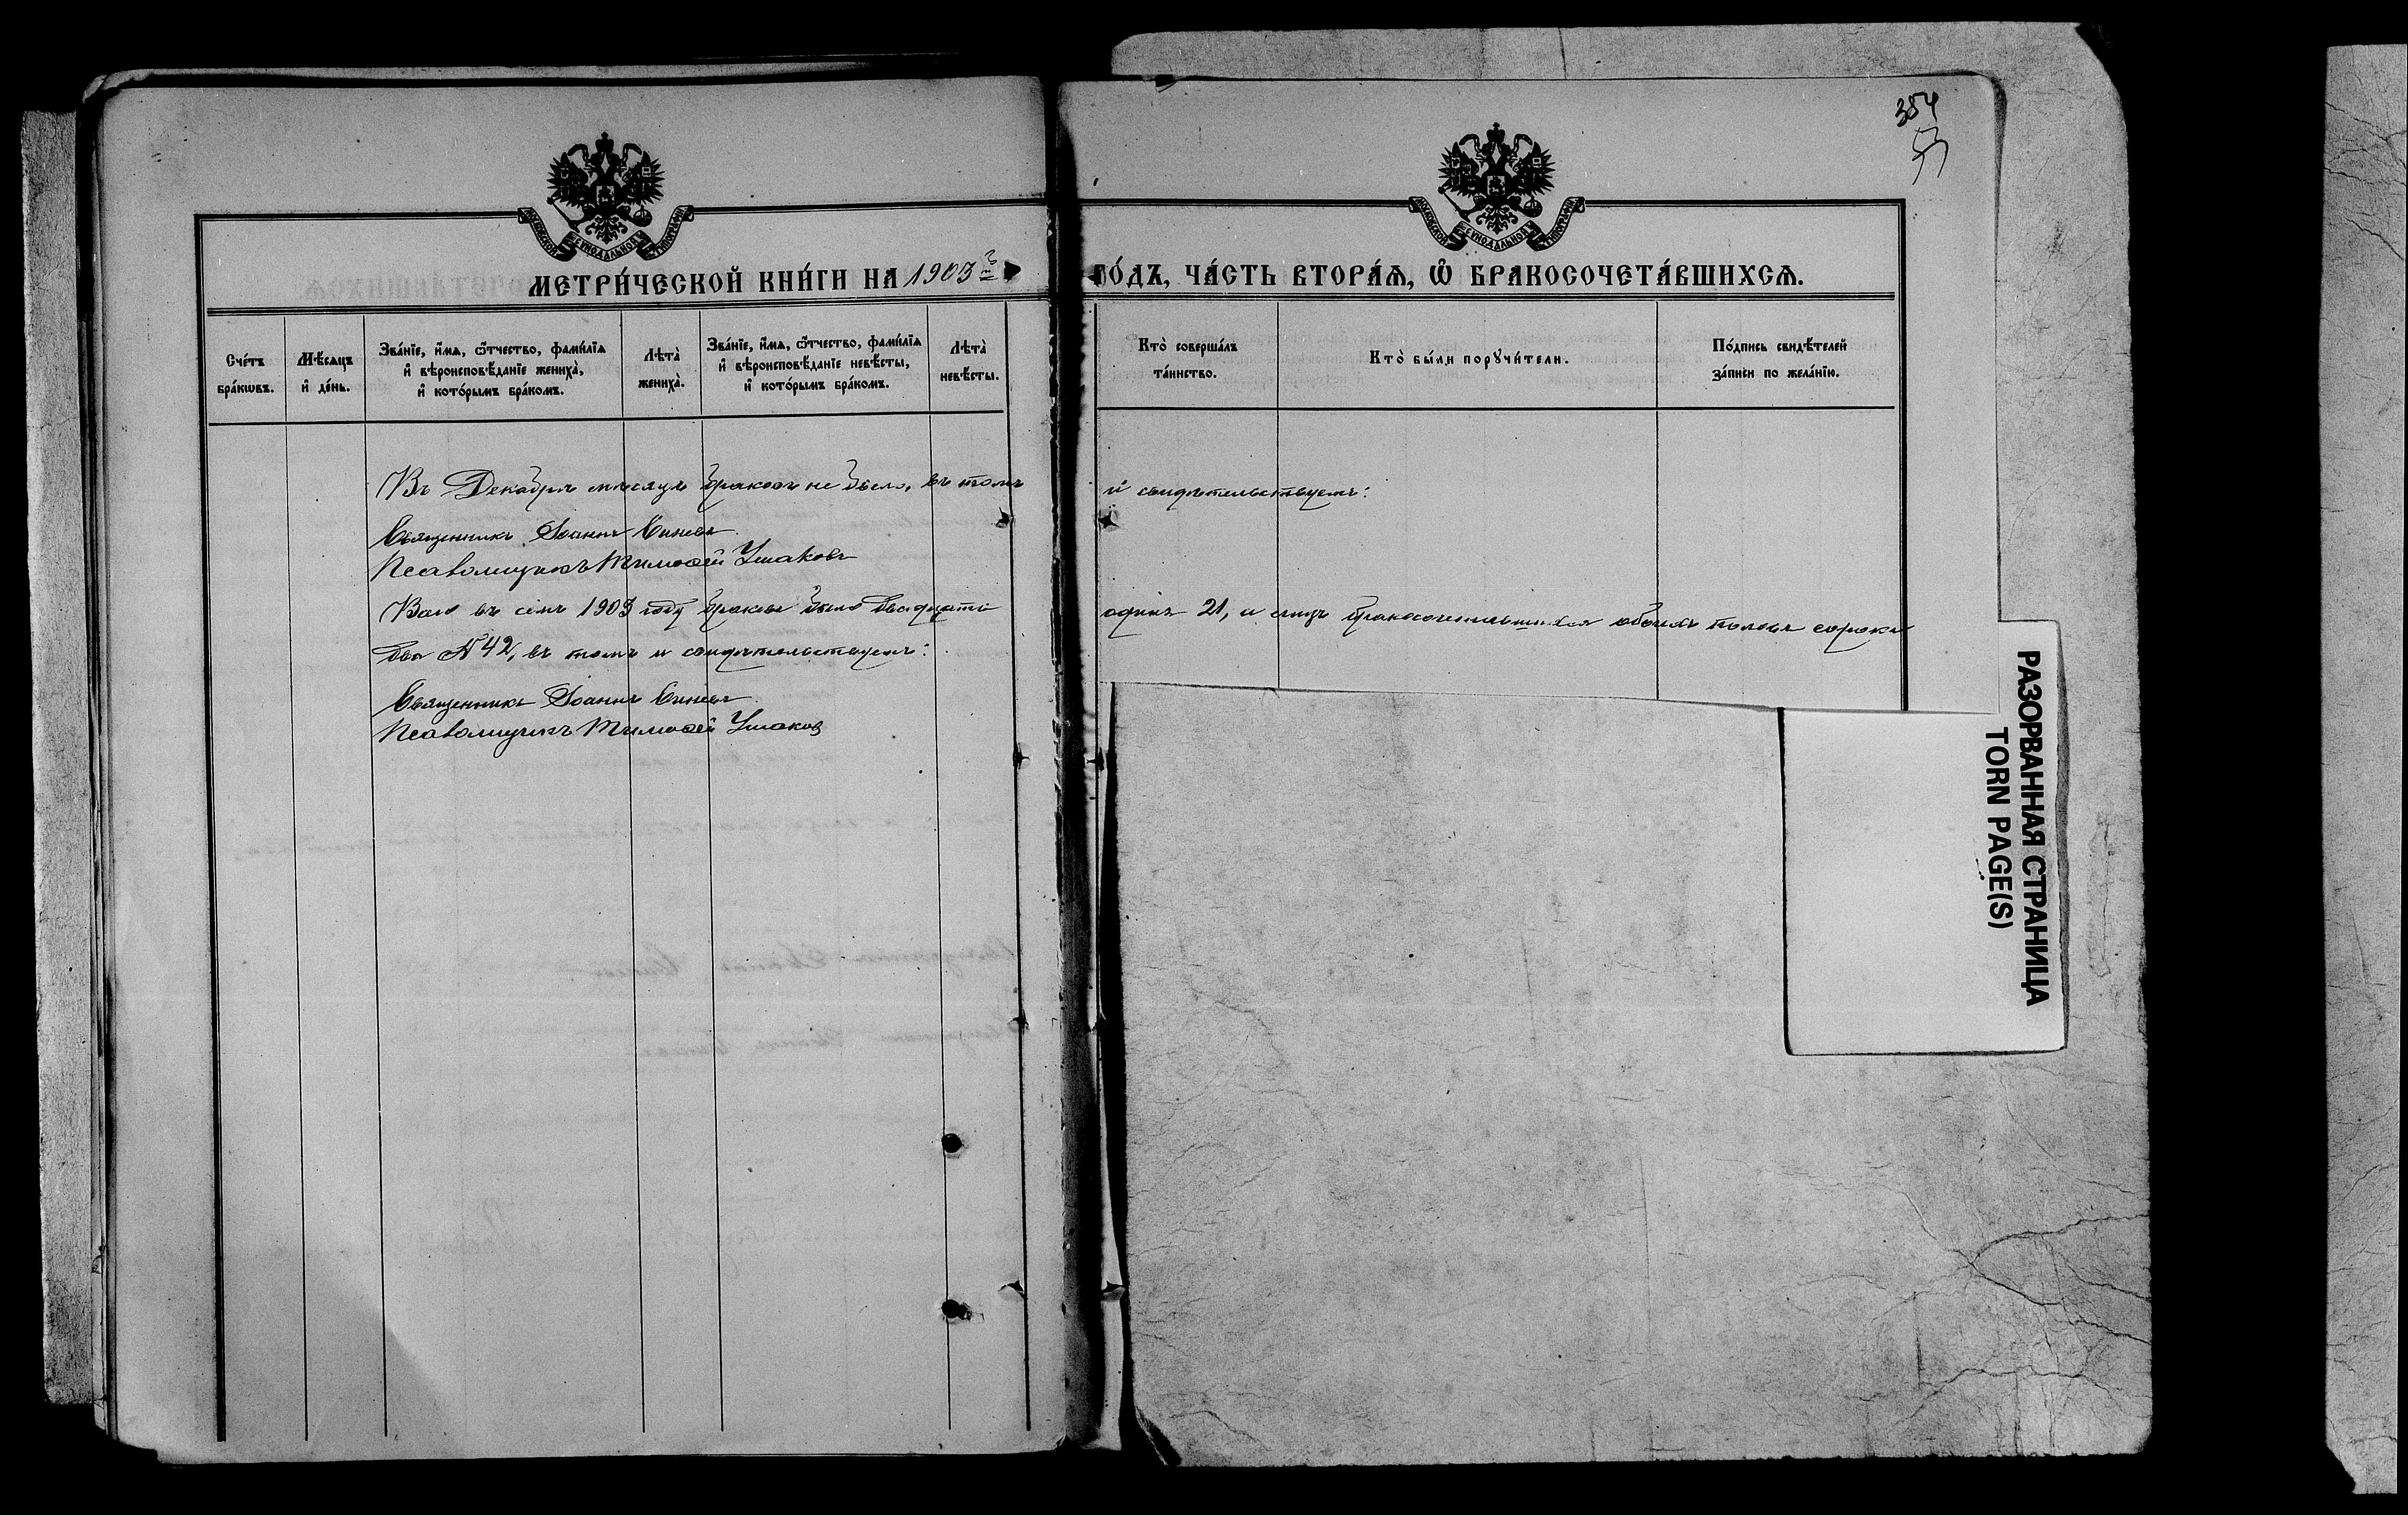 354
53
МОСКОВСКОЙ СѴНОДАЛЬНОЙ ТИПОГРАФІИ
МОСКОВСКОЙ СѴНОДАЛЬНОЙ ТИПОГРАФІИ
МЕТРИ́ЧЕСКОЙ КНИ́ГИ НА 1903 й ГО́ДЪ, ЧА́СТЬ ВТОРА́Ѧ, Ѽ БРАКОСОЧЕТА́ВШИХСѦ.
Сче́тъ
бра́кѡвъ.
Мѣ́сяцъ
и҆ де́нь.
Зва́нїе, и҆́мѧ, ѻ҆́тчество, фами́лїѧ
и҆ вѣроисповѣ́данїе жениха̀,
и҆ кото́рымъ бра́комъ.
Лѣта̀
жениха̀.
Зва́нїе, и҆́мѧ, ѻ҆́тчество, фами́лїѧ
и҆ вѣроисповѣ́данїе невѣ́сты,
и҆ кото́рымъ бра́комъ.
Лѣта̀
невѣ́сты.
Кто̀ соверша́лъ
та́инство.
Кто̀ бы́ли порꙋчи́тели.
По́дпись свидѣ́телей
за́писи по жела́нїю.
Въ Декабрѣ мѣсяцѣ браковъ не было, въ томъ и свидѣтельствуемъ:
Священникъ Іоаннъ
Псаломщикъ Тимоѳей Ушаковъ
Всего въ семъ 1903 году браковъ было двадцать одинъ 21, а лицъ бракосочетавшихся обоихъ половъ сорокъ
два № 42, въ томъ и свидѣтельствуемъ:
Священникъ Іоаннъ
Псаломщикъ Тимоѳей Ушаковъ
РАЗОРВАННАЯ СТРАНИЦА
TORN PAGE(S)